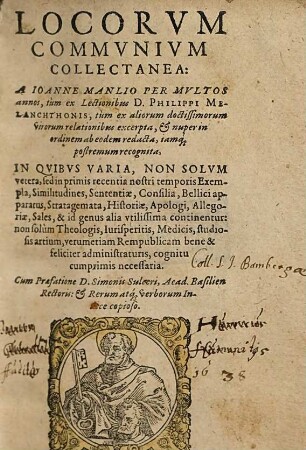 LOCORVM
COMMVNIVM
COLLECTANEA:
A IOANNE MANLIO PER MVLTOS
annos, tum ex Lectionibus D. PHILIPPI ME-
LANCHTHONIS, tum ex aliorum doctissimorum
virorum relationibus excerpta, & nuper in
ordinem ab eodem redacta, iamq;
postremum recognita.
IN QVIBVS VARIA, NON SOLVM
vetera, sed in primis recentia nostri temporis Exem-
pla, Similitudines, Sententiæ, Consilia, Bellici ap-
paratus, Stratagemata, Historiæ, Apologi, Allego-
riæ, Sales, & id genus alia vtilissima continentur:
non solùm Theologis, Iurisperitis, Medicis, studio-
sis artium, verumetiam Rempublicam bene &
feliciter administraturis, cognitu
cumprimis necessaria.
Coll. S. J. Bamberga
Cum Præfatione D. Simonis Sulceri, Acad. Basilien
Rectoris: & Rerum atq; verborum In-
dice copioso.
16 38